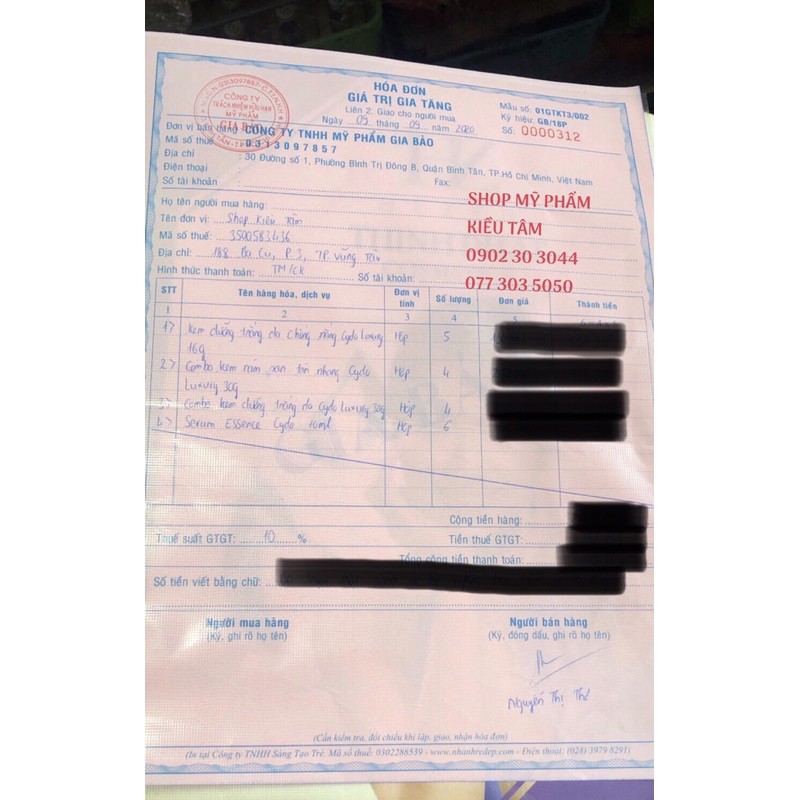 HÓA ĐƠN
GIÁ TRỊ GIA TĂNG
Liên 2: Giao cho người mua
Ngày 09 tháng 09 năm 2020
Mẫu số: 01GTKT3/002
Ký hiệu: GB/18P
Số: 0000312
CÔNG TY
TRÁCH NHIỆM HỮU HẠN
MỸ PHẨM
GIA BẢO
Đơn vị bán hàng: CÔNG TY TNHH MỸ PHẨM GIA BẢO
Mã số thuế: 0313097857
Địa chỉ : 30 Đường số 1, Phường Bình Trị Đông B, Quận Bình Tân, TP.Hồ Chí Minh, Việt Nam
Điện thoại : Fax:
Số tài khoản :
SHOP MỸ PHẨM
KIỀU TÂM
0902 30 3044
077 303 5050
Họ tên người mua hàng:
Tên đơn vị: Shop Kiều Tâm
Mã số thuế: 3500583436
Địa chỉ: 188 Ba Cu, P.3, TP. Vũng Tàu
Hình thức thanh toán: TM/CK Số tài khoản:
STT Tên hàng hóa, dịch vụ Đơn vị tính Số lượng Đơn giá Thành tiền
1 2 3 4 5
1> Kem dưỡng trắng da chống nắng Cydo Luxury 16g Hộp 5
2> Combo kem nám sạn tàn nhang Cydo Luxury 30g Hộp 4
3> Combo kem dưỡng trắng da Cydo Luxury 30g Hộp 4
4> Serum Essence Cydo 10ml Hộp 6
Cộng tiền hàng:
Thuế suất GTGT: 10 % Tiền thuế GTGT:
Tổng cộng tiền thanh toán:
Số tiền viết bằng chữ:
Người mua hàng
(Ký, ghi rõ họ tên)
Người bán hàng
(Ký, đóng dấu, ghi rõ họ tên)
Nguyễn Thị Thê
(Cần kiểm tra, đối chiếu khi lập, giao, nhận hóa đơn)
(In tại Công ty TNHH Sáng Tạo Trẻ. Mã số thuế: 0302288539 - www.nhanhredep.com - Điện thoại: (028) 3979 8291)